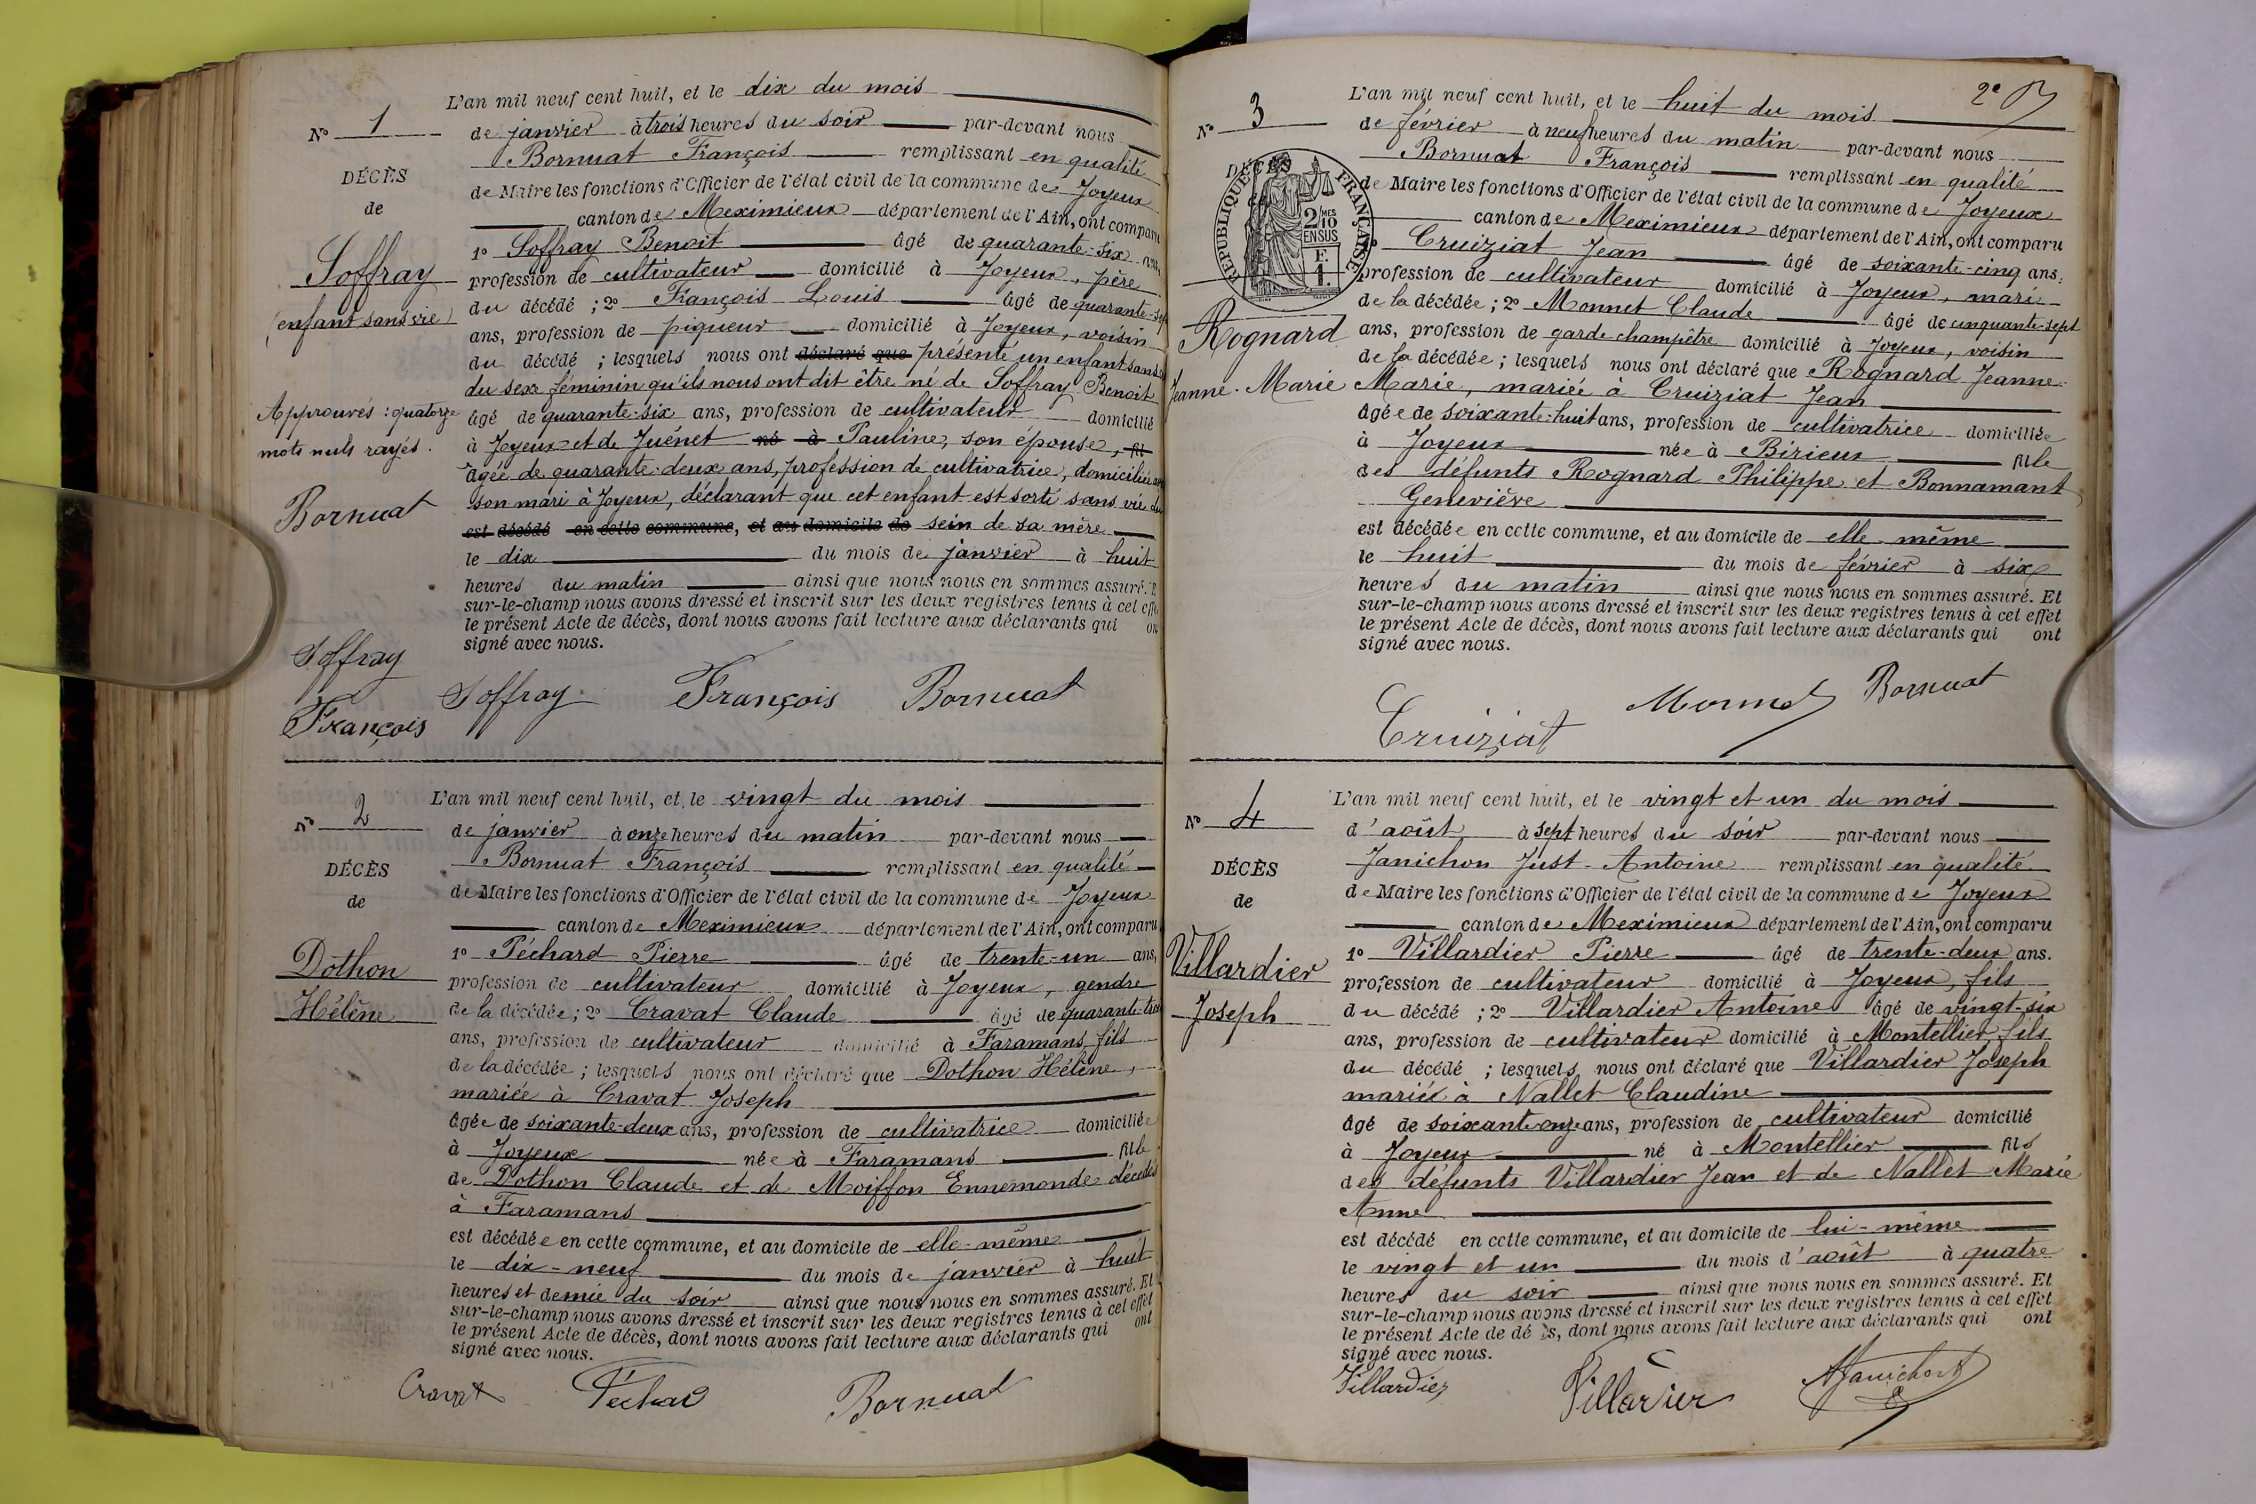 N° 1
DÉCÈS
de
Soffray
(enfant sans vie)
Approuvés : quatorze
mots nuls rayés.
Bornuat
Soffray
François
L'an mil neuf cent huit, et le dix du mois
de janvier à trois heures du soir par-devant nous
Bornuat François remplissant en qualité
de Maire les fonctions d'Officier de l'état civil de la commune de Joyeux
canton de Meximieux département de l'Ain, ont comparu
1° Soffray Benoit âgé de quarante-six ans,
profession de cultivateur domicilié à Joyeux, père
du décédé ; 2° François Louis âgé de quarante-sept
ans, profession de piqueur domicilié à Joyeux, voisin
du décédé ; lesquels nous ont déclaré que présenté un enfant sans vie
du sexe féminin qu'ils nous ont dit être né de Soffray Benoit
âgé de quarante-six ans, profession de cultivateur domicilié
à Joyeux et de Juénet né à Pauline, son épouse, fil
âgée de quarante-deux ans, profession de cultivatrice, domiciliée avec
son mari à Joyeux, déclarant que cet enfant est sorti sans vie du
est décédé en cette commune, et au domicile de sein de sa mère
le dix du mois de janvier à huit
heures du matin ainsi que nous nous en sommes assuré. Et
sur-le-champ nous avons dressé et inscrit sur les deux registres tenus à cet effet
le présent Acte de décès, dont nous avons fait lecture aux déclarants qui ont
signé avec nous.
Soffray François Bornuat
N° 2
DÉCÈS
de
Dothon
Hélène
L'an mil neuf cent huit, et le vingt du mois
de janvier à onze heures du matin par-devant nous
Bornuat François remplissant en qualité
de Maire les fonctions d'Officier de l'état civil de la commune de Joyeux
canton de Meximieux département de l'Ain, ont comparu
1° Péchard Pierre âgé de trente-un ans,
profession de cultivateur domicilié à Joyeux, gendre
de la décédée ; 2° Cravat Claude âgé de quarante-trois
ans, profession de cultivateur domicilié à Faramans, fils
de la décédée ; lesquels nous ont déclaré que Dothon Hélène,
mariée à Cravat Joseph
âgée de soixante-deux ans, profession de cultivatrice domiciliée
à Joyeux née à Faramans fille
de Dothon Claude et de Moiffon Ennemonde décédés
à Faramans
est décédée en cette commune, et au domicile de elle-même
le dix-neuf du mois de janvier à huit
heures et demie du soir ainsi que nous nous en sommes assuré. Et
sur-le-champ nous avons dressé et inscrit sur les deux registres tenus à cet effet
le présent Acte de décès, dont nous avons fait lecture aux déclarants qui ont
signé avec nous.
Cravat Péchard Bornuat
2e
N° 3
DÉCÈS
RÉPUBLIQUE FRANÇAISE
2/10 MES
EN SUS
F.
1.
Rognard
Jeanne-Marie
L'an mil neuf cent huit, et le huit du mois
de février à neuf heures du matin par-devant nous
Bornuat François remplissant en qualité
de Maire les fonctions d'Officier de l'état civil de la commune de Joyeux
canton de Meximieux département de l'Ain, ont comparu
Cruiziat Jean âgé de soixante-cinq ans,
profession de cultivateur domicilié à Joyeux, mari
de la décédée ; 2° Monnet Claude âgé de cinquante-sept
ans, profession de garde champêtre domicilié à Joyeux, voisin
de la décédée ; lesquels nous ont déclaré que Rognard Jeanne-
Marie, mariée à Cruiziat Jean
âgée de soixante-huit ans, profession de cultivatrice domiciliée
à Joyeux née à Birieux fille
des défunts Rognard Philippe et Bonnamant
Geneviève
est décédée en cette commune, et au domicile de elle-même
le huit du mois de février à six
heures du matin ainsi que nous nous en sommes assuré. Et
sur-le-champ nous avons dressé et inscrit sur les deux registres tenus à cet effet
le présent Acte de décès, dont nous avons fait lecture aux déclarants qui ont
signé avec nous.
Cruiziat Monnet Bornuat
N° 4
DÉCÈS
de
Villardier
Joseph
L'an mil neuf cent huit, et le vingt et un du mois
d'août à sept heures du soir par-devant nous
Janichon Just-Antoine remplissant en qualité
de Maire les fonctions d'Officier de l'état civil de la commune de Joyeux
canton de Meximieux département de l'Ain, ont comparu
1° Villardier Pierre âgé de trente-deux ans.
profession de cultivateur domicilié à Joyeux, fils
du décédé ; 2° Villardier Antoine âgé de vingt-six
ans, profession de cultivateur domicilié à Montellier, fils
du décédé ; lesquels nous ont déclaré que Villardier Joseph
marié à Nallet Claudine
âgé de soixante-onze ans, profession de cultivateur domicilié
à Joyeux né à Montellier fils
des défunts Villardier Jean et de Nallet Marie
Anne
est décédé en cette commune, et au domicile de lui-même
le vingt et un du mois d'août à quatre
heures du soir ainsi que nous nous en sommes assuré. Et
sur-le-champ nous avons dressé et inscrit sur les deux registres tenus à cet effet
le présent Acte de dé s, dont nous avons fait lecture aux déclarants qui ont
signé avec nous.
Villardier Villardier Janichon